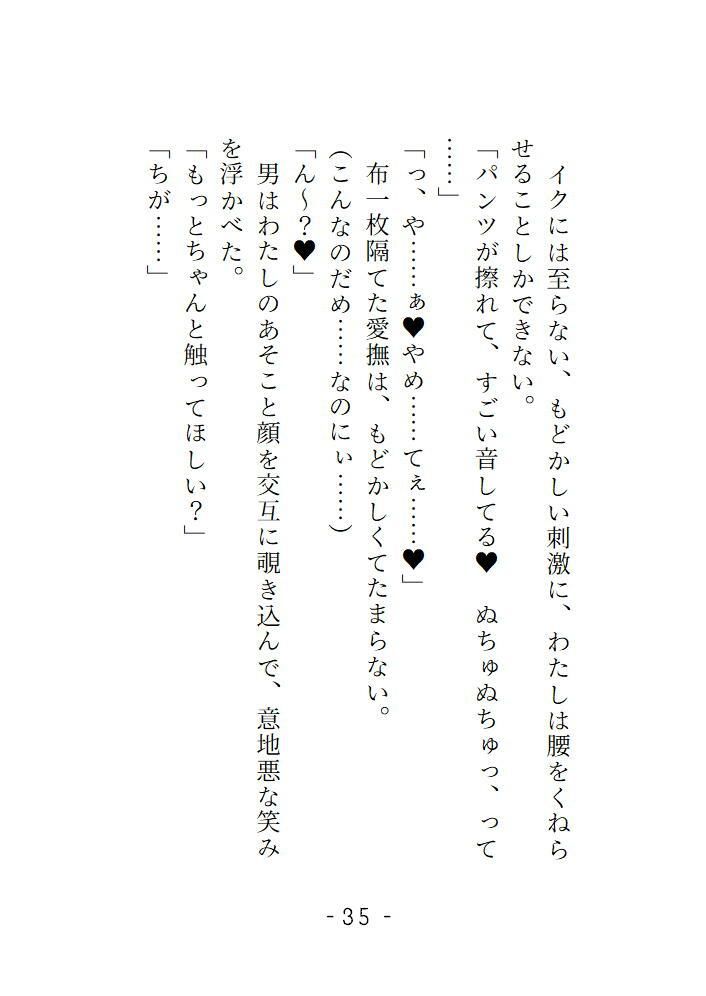 イクには至らない、もどかしい刺激に、わたしは腰をくねら
せることしかできない。
「パンツが擦れて、すごい音してる♥　ぬちゅぬちゅっ、って
……」
「っ、や……ぁ♥やめ……てぇ……♥」
布一枚隔てた愛撫は、もどかしくてたまらない。
(こんなのだめ……なのにぃ……)
「ん～？♥」
男はわたしのあそこと顔を交互に覗き込んで、意地悪な笑み
を浮かべた。
「もっとちゃんと触ってほしい？」
「ちが……」
- 35 -